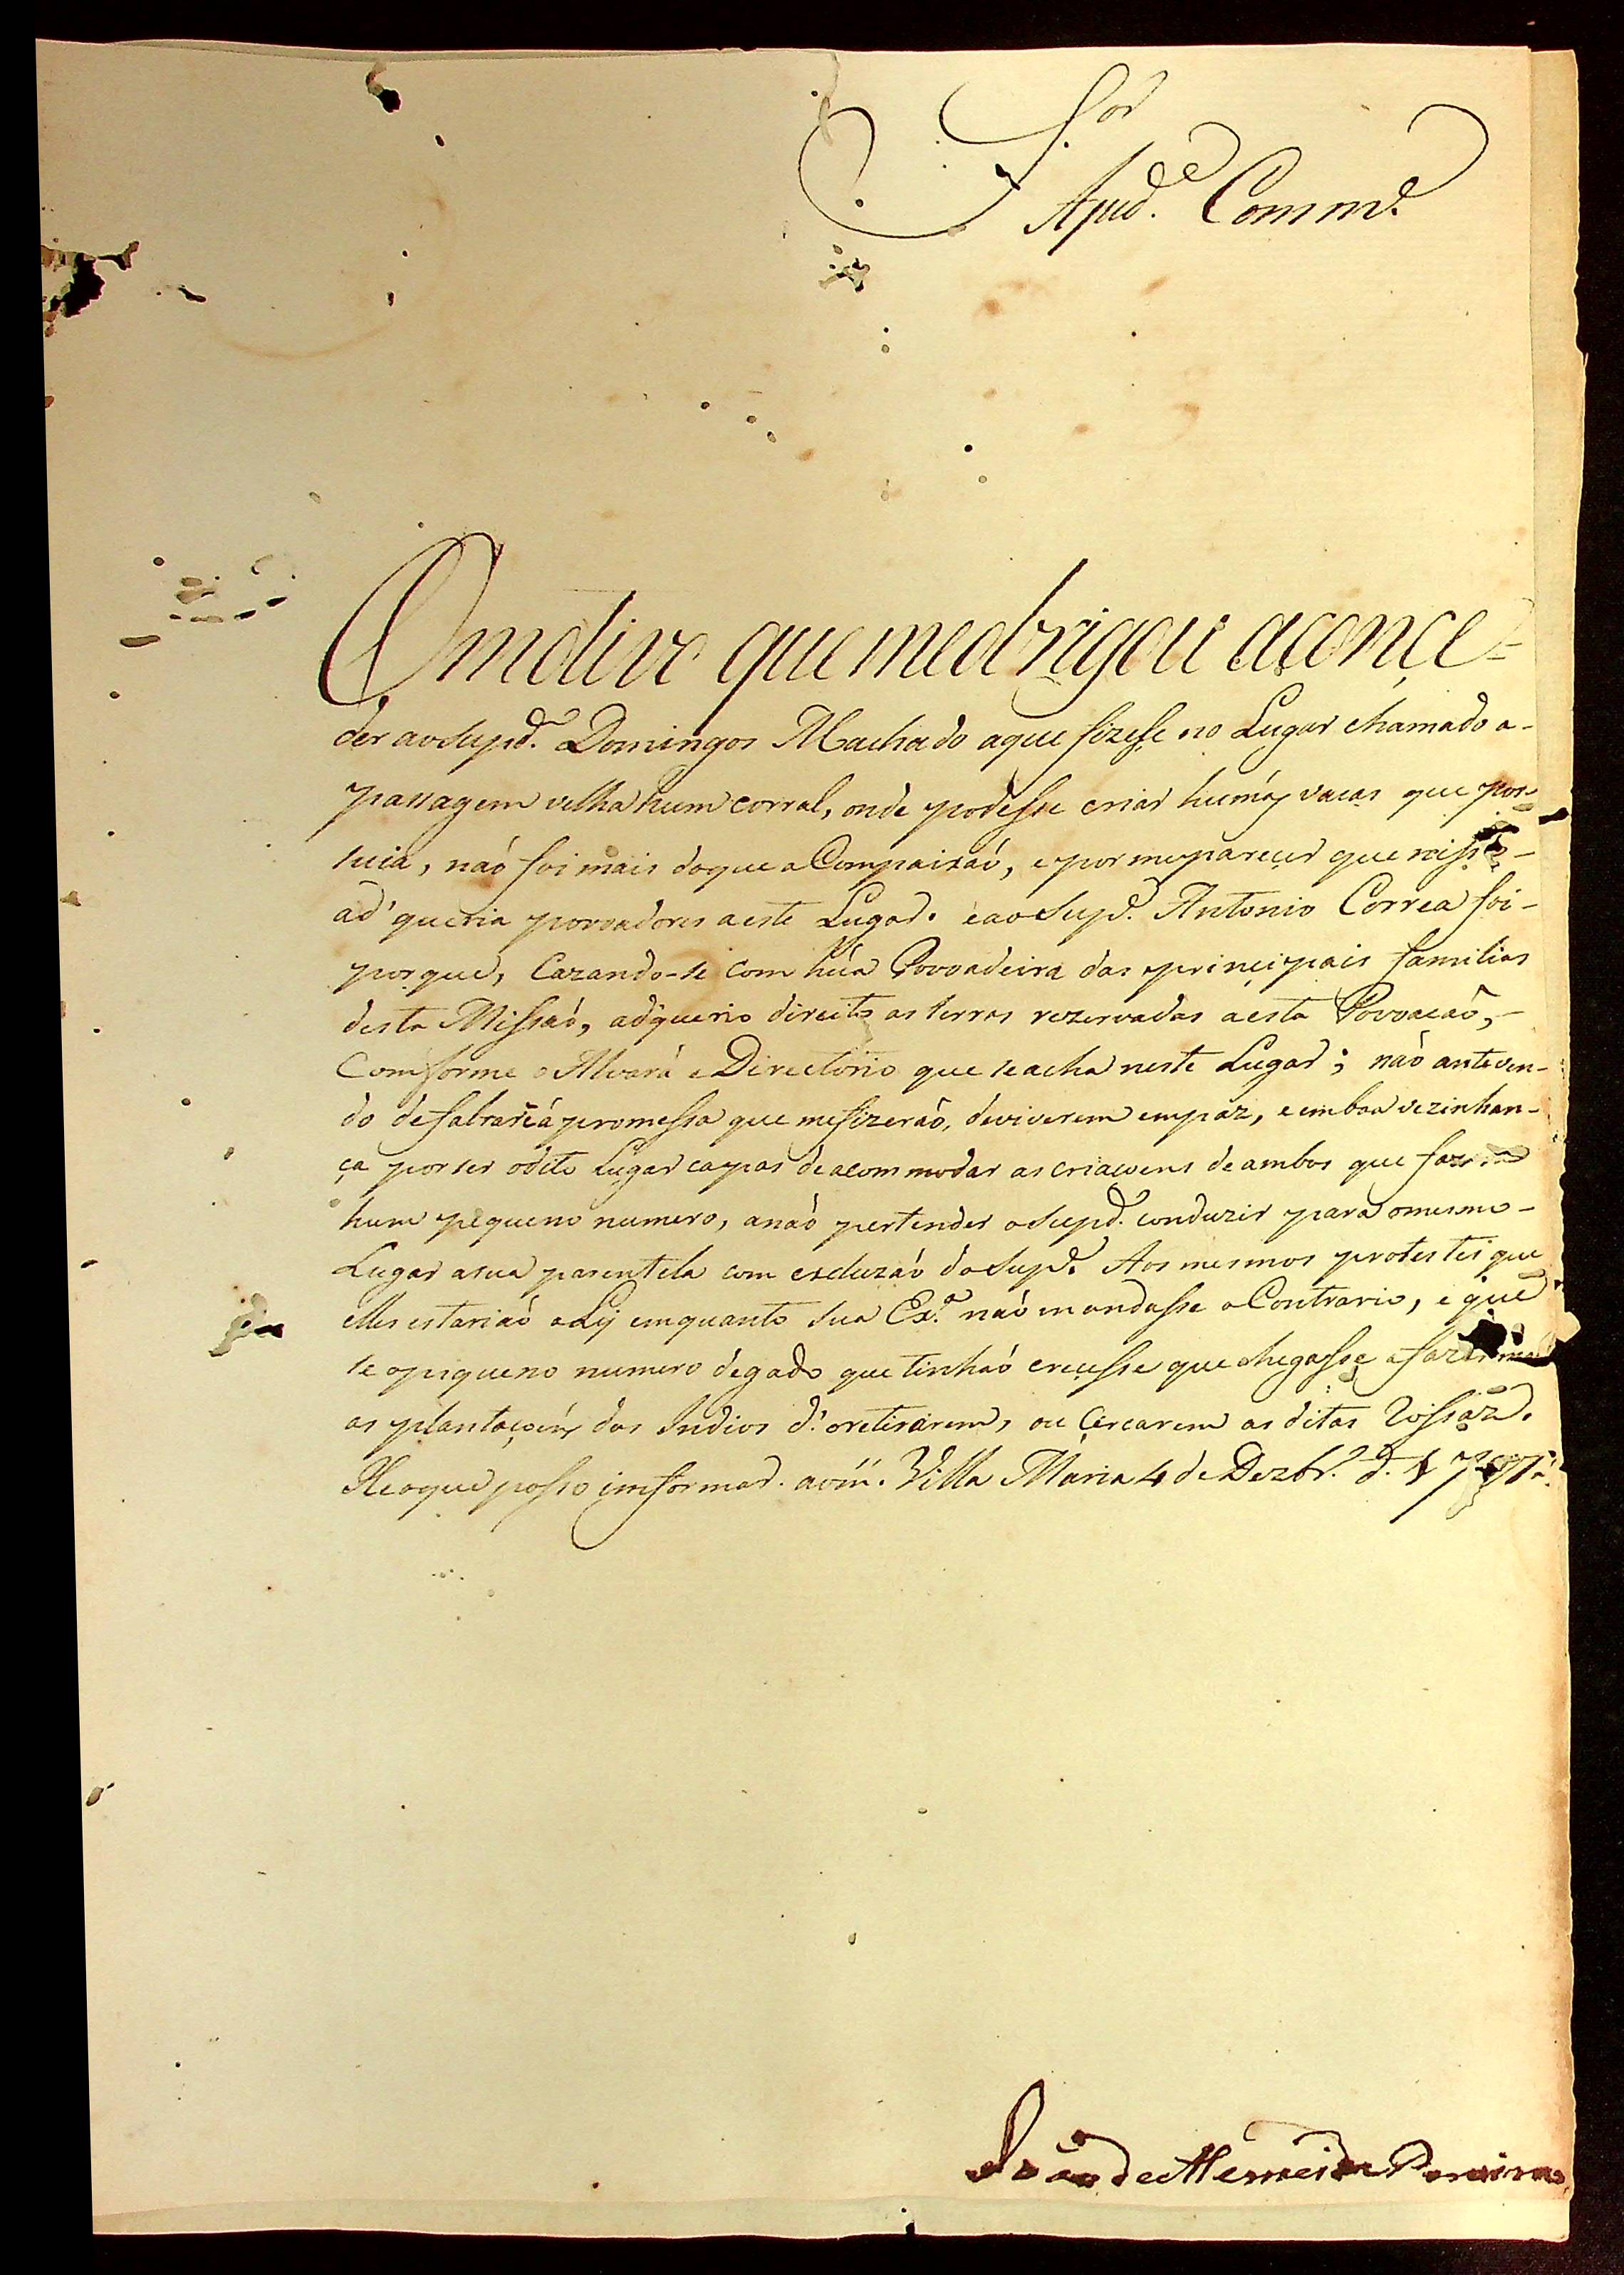 S.or
Ajud.e Comm.e
O motivo que meobrigou aconçe=
der aoSupd.e Domingos Machado aque fizesse no Lugar chamado a-
passagem velha hum corral, onde podesse criar humas vacas que pos-
suia, naó foi mais doque a Compaixaó, e por meparecer que nisso-
ad'queria povoadores aeste Lugar. eao Supd.e Antonio Correa foi-
porque, Cazando-se com húa Povoadeira das prinçipais familias
desta Missaó, adquerio direito as terras rezervadas aesta Povoacaõ,-
Comforme o Alvará e Directorio que seacha neste Lugar; naó anteven-
do defaltarê á promessa que mefizeraó, deviverem empaz, e emboa vezinhan-
ça por ser odito Lugar capas deacommodar as criacoens de ambos que fazem
hum pequeno numero, anaó pertender oSupd.e conduzir para omesmo-
Lugar asua parentela com excluzaó doSupd.e Aos mesmos protestei que
elles estariaó aLy emquanto Sua Ex.a naó mandasse oContrario, e que
se opiqueno numero degado que tinhaó crecesse que chegasse afazer mal
as plantaçoins dos Indios d'. oretirarem, ou Çercarem as ditas Rossaz.
He oque posso imformar. avm. Villa Maria 4 de Dezbr.o d. 1797ã.
João de Almeida Pereira